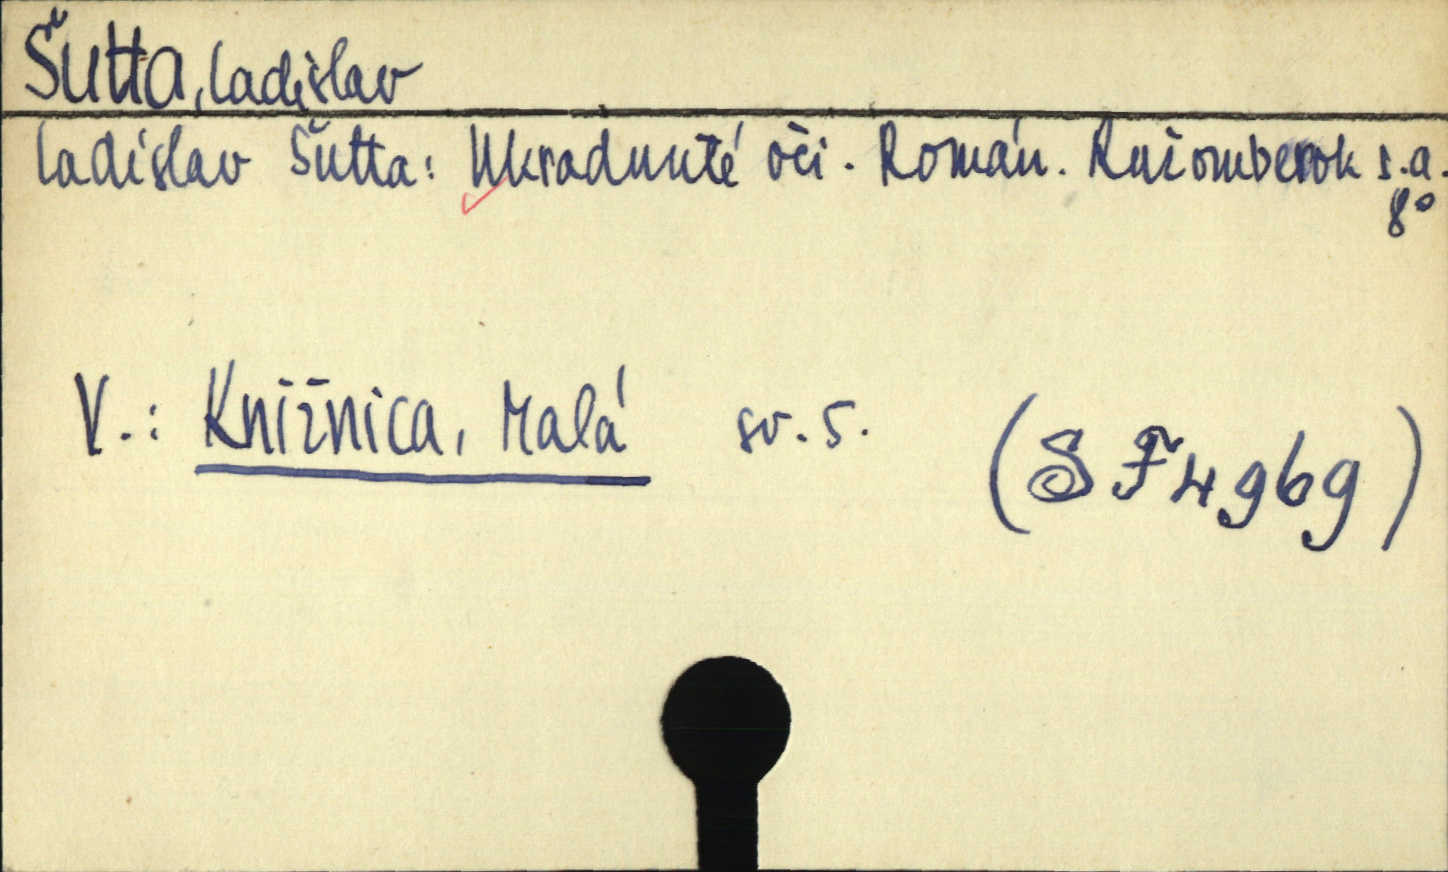 Šutta, Ladislav
Ladislav Šutta: Ukradnuté oči. Román. Ružomberok s.a.
8°
V.: Knižnica, Malá sv. 5.
(S F 4969)